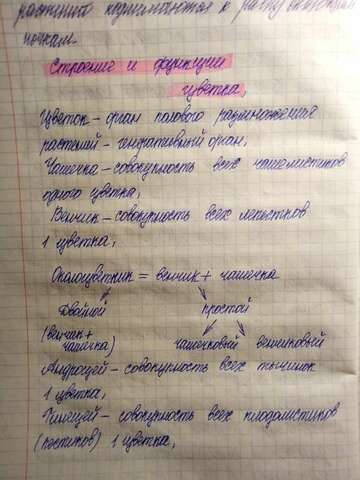 растений поднимаются к распускающимся
почкам.
Строение и функции
цветка,
Цветок - орган полового размножения
растений - генеративный орган,
Чашечка - совокупность всех чашелистиков
одного цветка,
Венчик - совокупность всех лепестков
1 цветка,
Околоцветник = венчик + чашечка
Двойной простой
(венчик + чашечка) чашечковый венчиковый
Андроцей - совокупность всех тычинок
1 цветка,
Гинецей - совокупность всех плодолистиков
(пестиков) 1 цветка,